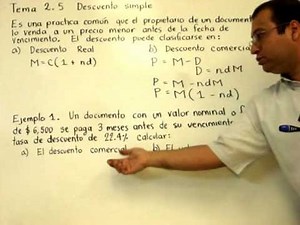 Tema 2.5 Descuento simple
Es una practica común que el propietario de un document
lo venda a un precio menor antes de la fecha de
vencimiento. El descuento puede clasificarse en:
a) Descuento Real b) Descuento comercial
M=C(1+nd) P = M - D
D = ndM
P = M - ndM
P = M(1 - nd)
Ejemplo 1. Un documento con un valor nominal o f
de $6,500 se paga 3 meses antes de su vencimient
tasa de descuento de 22.4% calcular:
a) El descuento comercial b) El